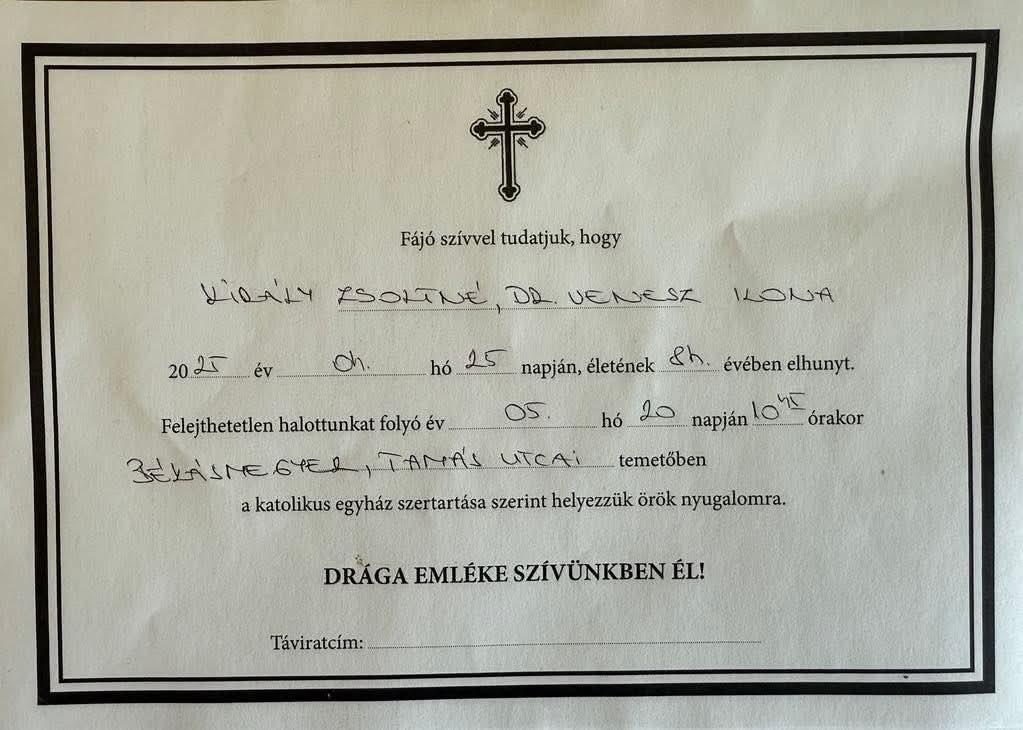 Fájó szívvel tudatjuk, hogy
KIRÁLY ZSOLTNÉ, DR. VENESZ ILONA
2025 év 04. hó 25 napján, életének 84. évében elhunyt.
Felejthetetlen halottunkat folyó év 05. hó 20 napján 10 45 órakor
BÉKÁSMEGYER, TAMÁS UTCAI temetőben
a katolikus egyház szertartása szerint helyezzük örök nyugalomra.
DRÁGA EMLÉKE SZÍVÜNKBEN ÉL!
Táviratcím: